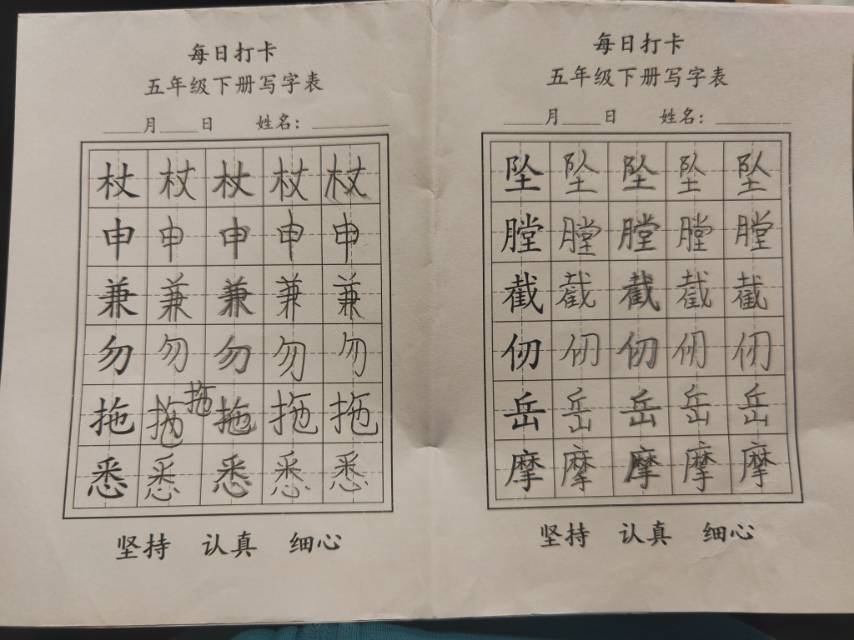 每日打卡
五年级下册写字表
____月____日 姓名：________
杖 杖 杖 杖 杖
申 申 申 申 申
兼 兼 兼 兼 兼
勿 勿 勿 勿 勿
拖 拖 拖 拖 拖 拖
悉 悉 悉 悉 悉
坚持 认真 细心
每日打卡
五年级下册写字表
____月____日 姓名：________
坠 坠 坠 坠 坠
膛 膛 膛 膛 膛
截 截 截 截 截
仞 仞 仞 仞 仞
岳 岳 岳 岳 岳
摩 摩 摩 摩 摩
坚持 认真 细心